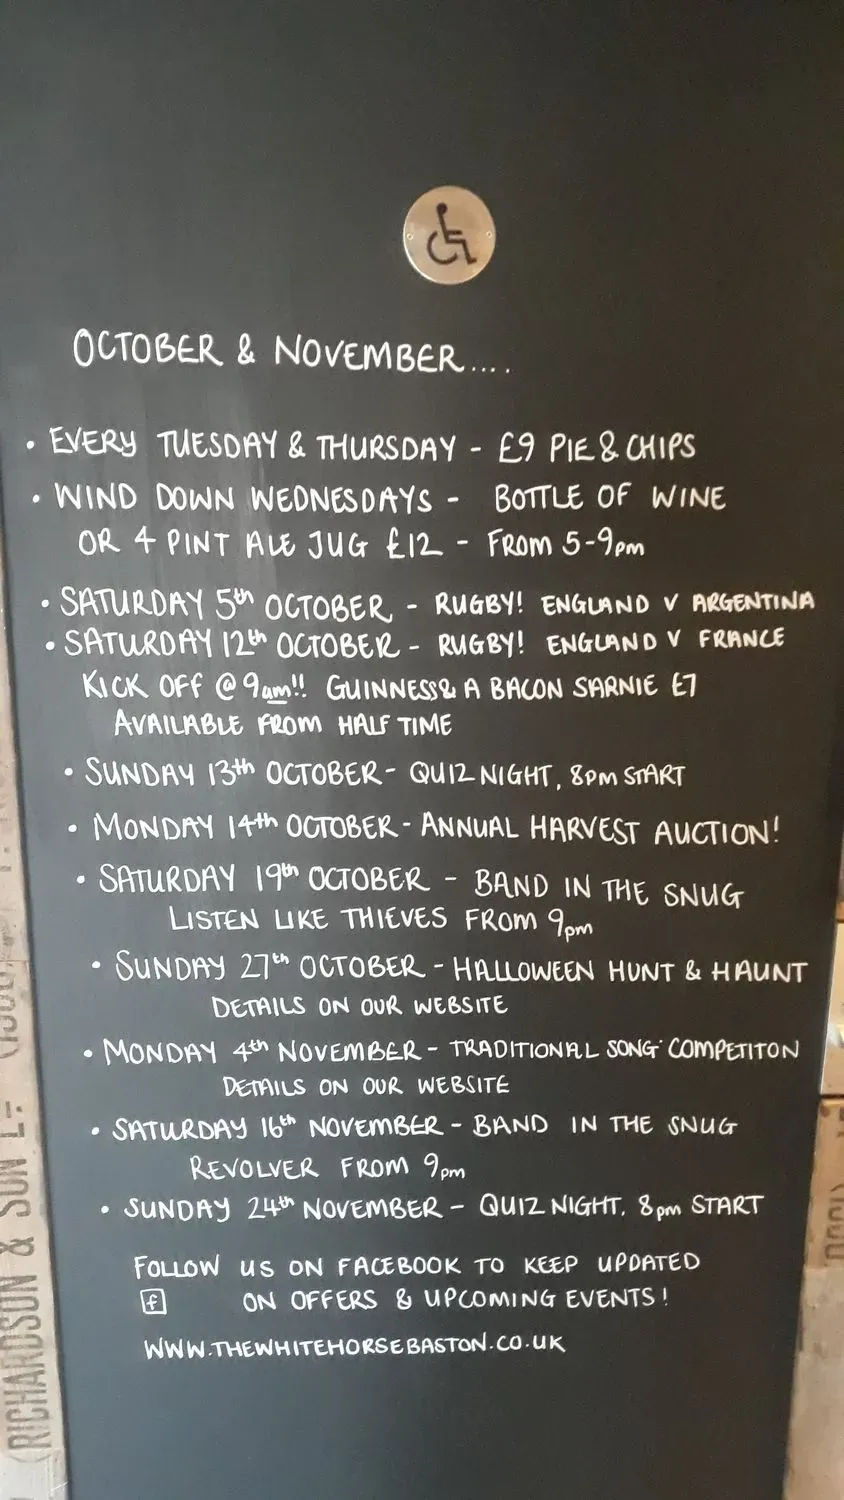 OCTOBER & NOVEMBER....
• EVERY TUESDAY & THURSDAY - £9 PIE & CHIPS
• WIND DOWN WEDNESDAYS - BOTTLE OF WINE
OR 4 PINT ALE JUG £12 - FROM 5-9pm
• SATURDAY 5th OCTOBER - RUGBY! ENGLAND V ARGENTINA
• SATURDAY 12th OCTOBER - RUGBY! ENGLAND V FRANCE
KICK OFF @ 9am!! GUINNESS & A BACON SARNIE £7
AVAILABLE FROM HALF TIME
• SUNDAY 13th OCTOBER - QUIZ NIGHT, 8pm START
• MONDAY 14th OCTOBER - ANNUAL HARVEST AUCTION!
• SATURDAY 19th OCTOBER - BAND IN THE SNUG
LISTEN LIKE THIEVES FROM 9pm
• SUNDAY 27th OCTOBER - HALLOWEEN HUNT & HAUNT
DETAILS ON OUR WEBSITE
• MONDAY 4th NOVEMBER - TRADITIONAL SONG COMPETITON
DETAILS ON OUR WEBSITE
• SATURDAY 16th NOVEMBER - BAND IN THE SNUG
REVOLVER FROM 9pm
• SUNDAY 24th NOVEMBER - QUIZ NIGHT. 8pm START
FOLLOW US ON FACEBOOK TO KEEP UPDATED
f ON OFFERS & UPCOMING EVENTS!
WWW.THEWHITEHORSEBASTON.CO.UK
RICHARDSON & SON